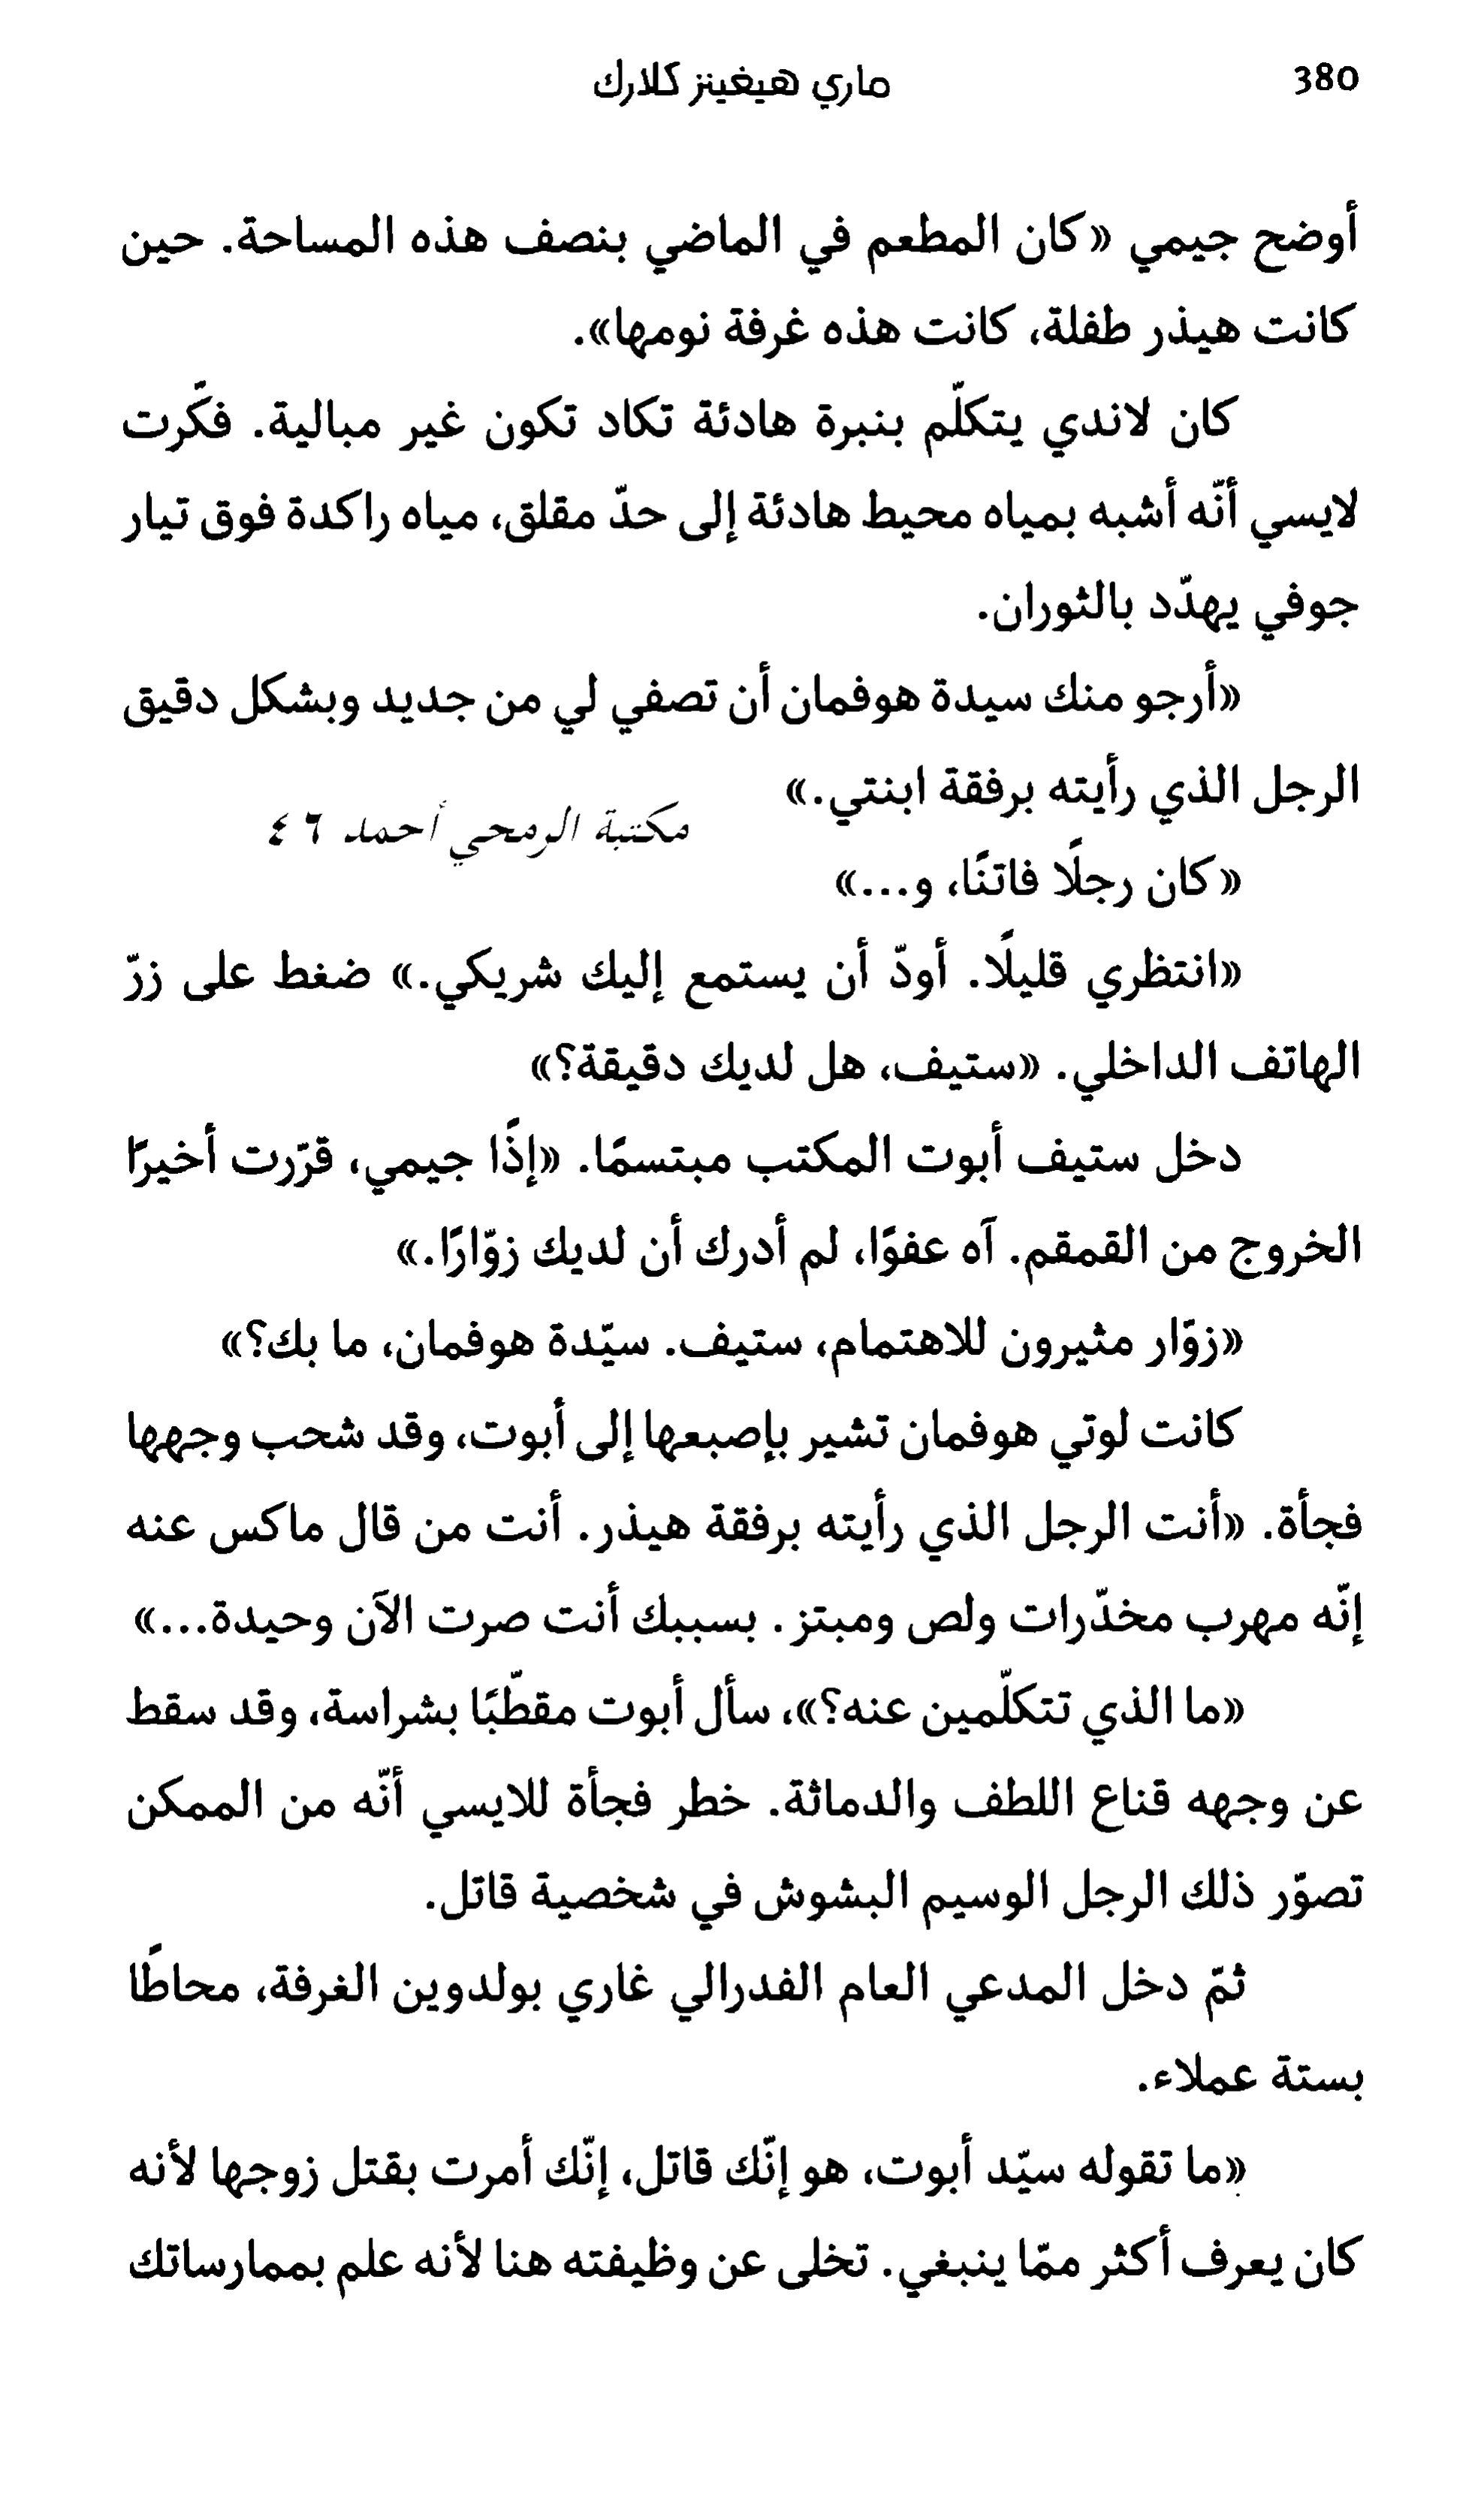 380
ماري هيغينز كلارك
أوضح جيمي «كان المطعم في الماضي بنصف هذه المساحة. حين
كانت هيذر طفلة، كانت هذه غرفة نومها».
كان لاندي يتكلّم بنبرة هادئة تكاد تكون غير مبالية. فكّرت
لايسي أنّه أشبه بمياه محيط هادئة إلى حدّ مقلق، مياه راكدة فوق تيار
جوفي يهدّد بالثوران.
«أرجو منك سيدة هوفمان أن تصفي لي من جديد وبشكل دقيق
الرجل الذي رأيته برفقة ابنتي.»
مكتبة الرمحي أحمد ٤٦
«كان رجلًا فاتنًا، و...»
«انتظري قليلًا. أودّ أن يستمع إليك شريكي.» ضغط على زرّ
الهاتف الداخلي. «ستيف، هل لديك دقيقة؟»
دخل ستيف أبوت المكتب مبتسمًا. «إذًا جيمي، قرّرت أخيرًا
الخروج من القمقم. آه عفوًا، لم أدرك أن لديك زوّارًا.»
«زوّار مثيرون للاهتمام، ستيف. سيّدة هوفمان، ما بك؟»
كانت لوتي هوفمان تشير بإصبعها إلى أبوت، وقد شحب وجهها
فجأة. «أنت الرجل الذي رأيته برفقة هيذر. أنت من قال ماكس عنه
إنّه مهرب مخدّرات ولص ومبتز. بسببك أنت صرت الآن وحيدة...»
«ما الذي تتكلّمين عنه؟»، سأل أبوت مقطّبًا بشراسة، وقد سقط
عن وجهه قناع اللطف والدماثة. خطر فجأة للايسي أنّه من الممكن
تصوّر ذلك الرجل الوسيم البشوش في شخصية قاتل.
ثمّ دخل المدعي العام الفدرالي غاري بولدوين الغرفة، محاطًا
بستة عملاء.
«ما تقوله سيّد أبوت، هو إنّك قاتل، إنّك أمرت بقتل زوجها لأنه
كان يعرف أكثر ممّا ينبغي. تخلى عن وظيفته هنا لأنه علم بممارساتك